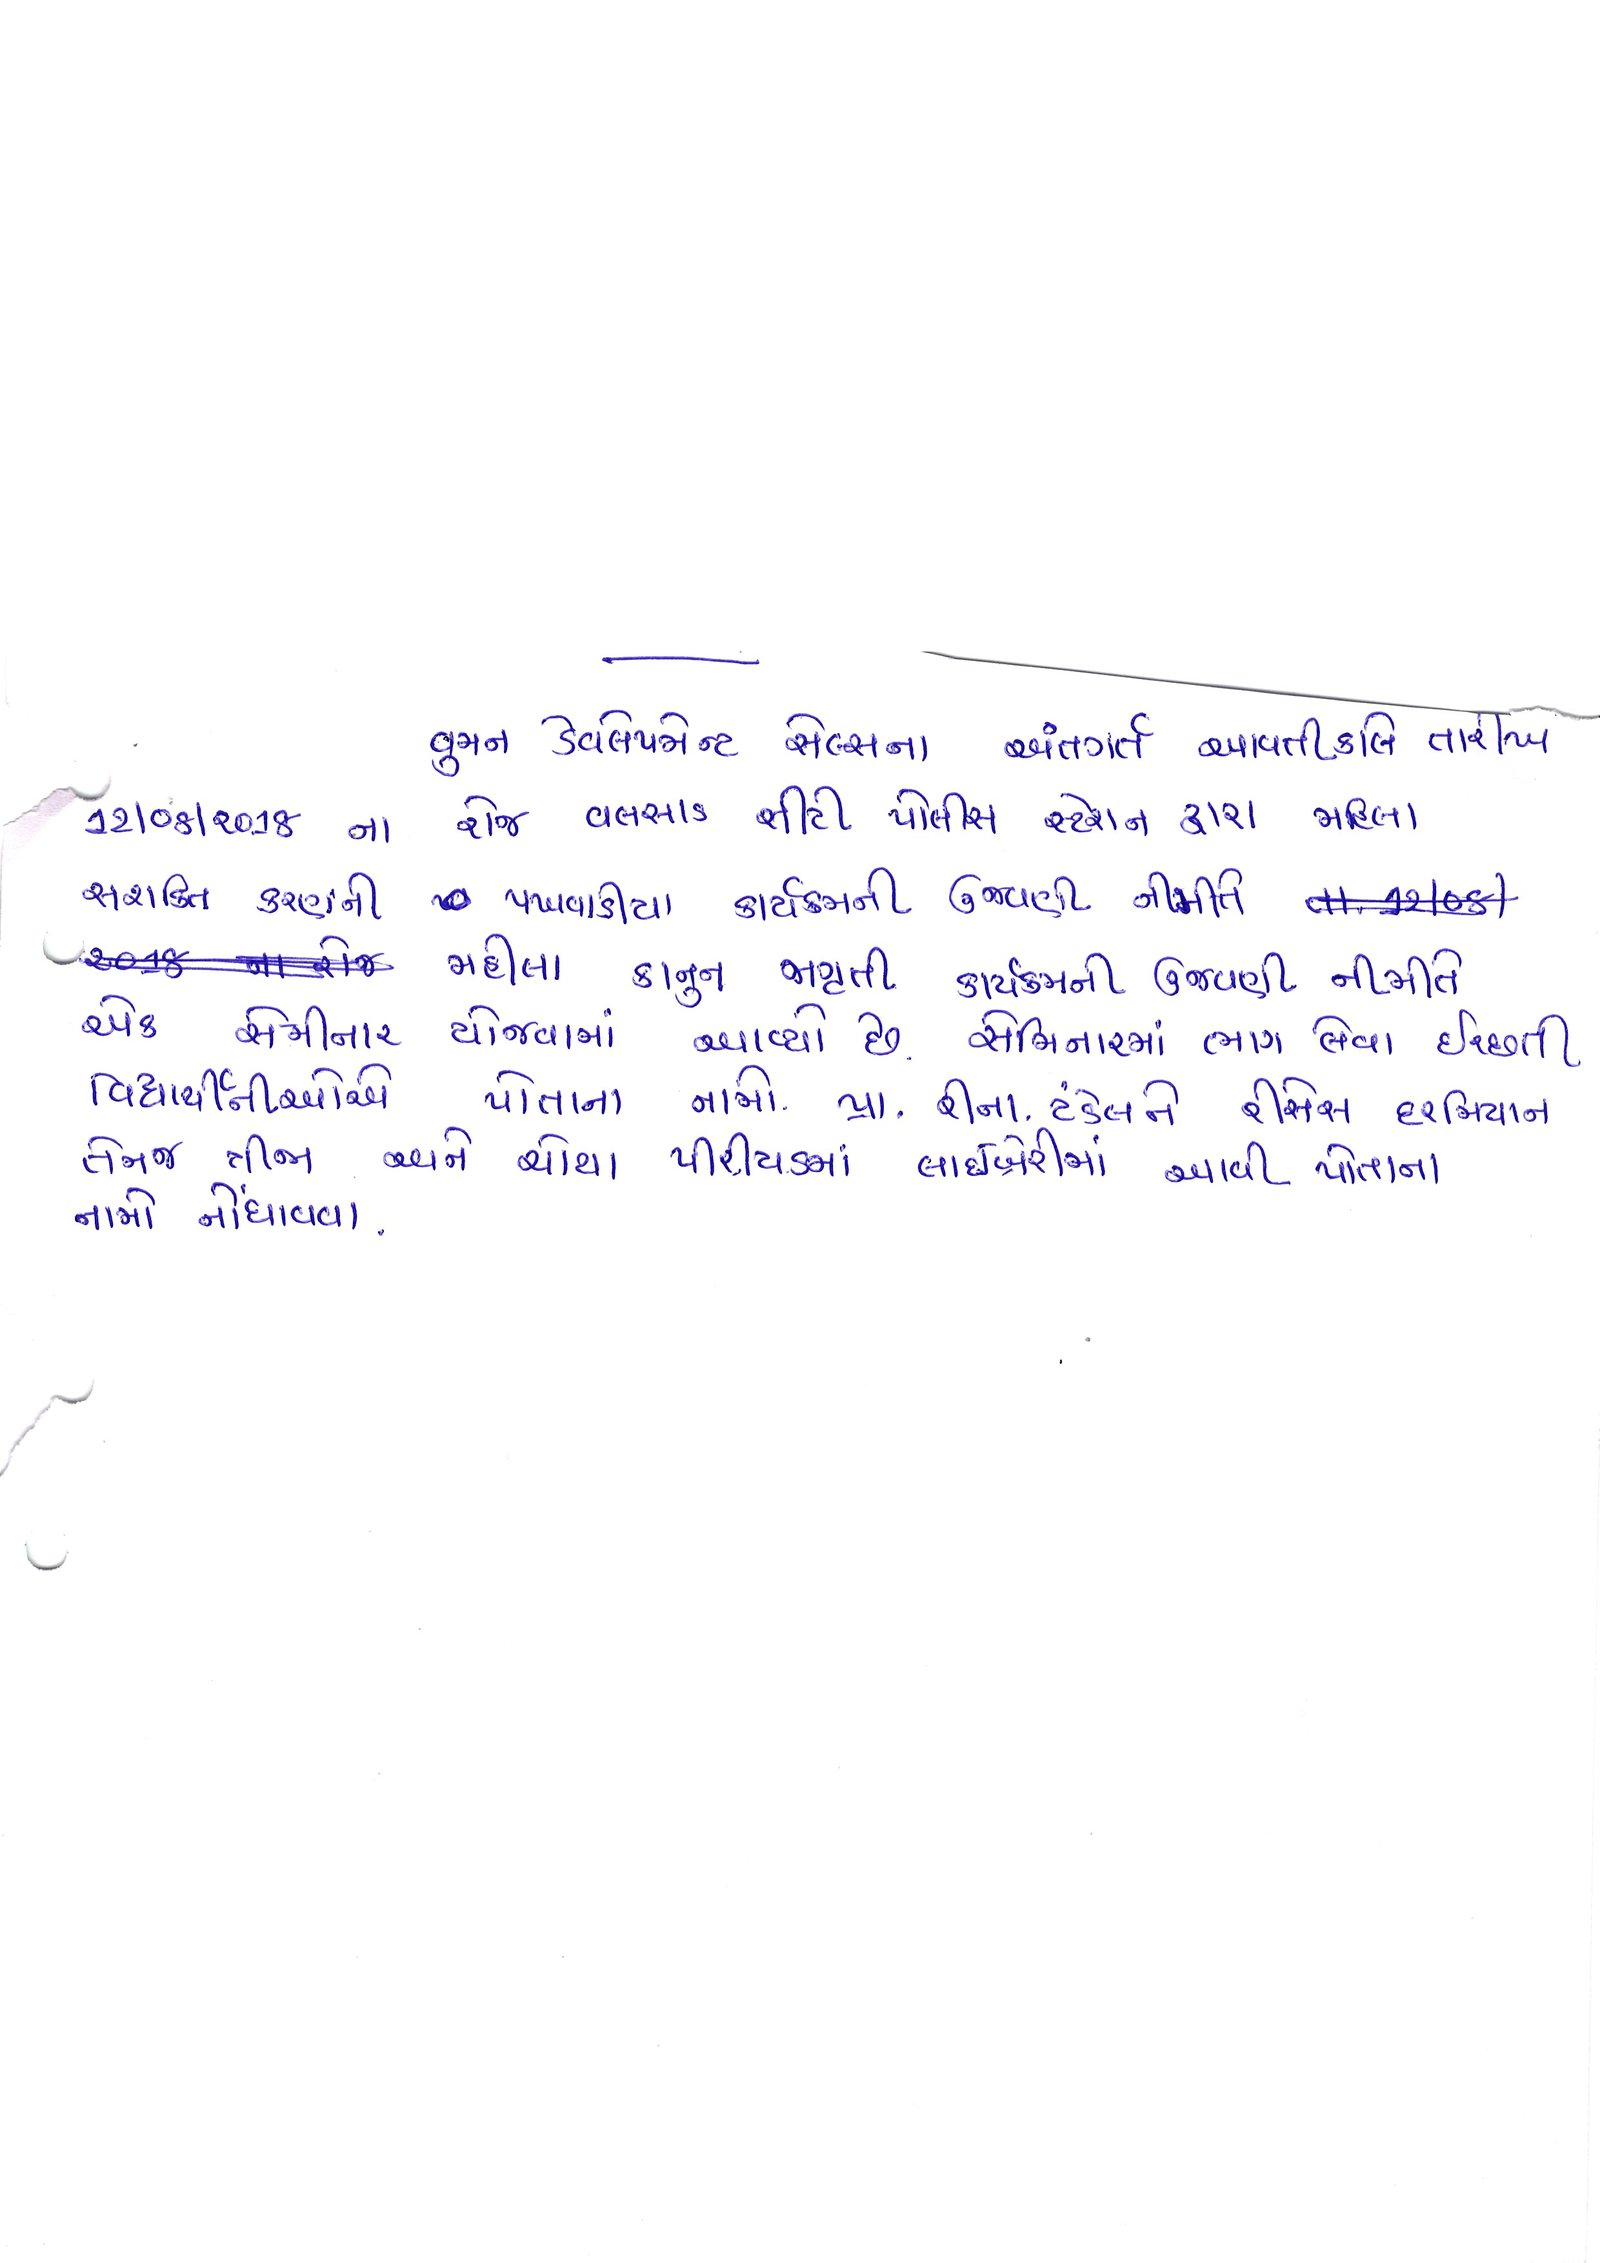 વુમન ડેવલેપમેન્ટ સેલ્સના અંતગર્ત આવતીકાલે તારીખ
૧૨/૦૮/૨૦૧૮ ના રોજ વલસાડ સીટી પોલીસ સ્ટેશન દ્વારા મહિલા
સશક્તિ કરણની પખવાડીયા કાર્યક્રમની ઉજવણી નીમીતે તા. ૧૨/૦૮/
૨૦૧૮ ના રોજ મહીલા કાનુન જાગૃતી કાર્યક્રમની ઉજવણી નીમીતે
એક સેમીનાર યોજવામાં આવ્યો છે. સેમિનારમાં ભાગ લેવા ઈચ્છતી
વિદ્યાર્થીનીઓએ પોતાના નામો. પ્રા. રીના. ટંડેલને રીસેસ દરમિયાન
તેમજ ત્રીજા અને ચોથા પીરીયડમાં લાઈબ્રેરીમાં આવી પોતાના
નામો નોંધાવવા.